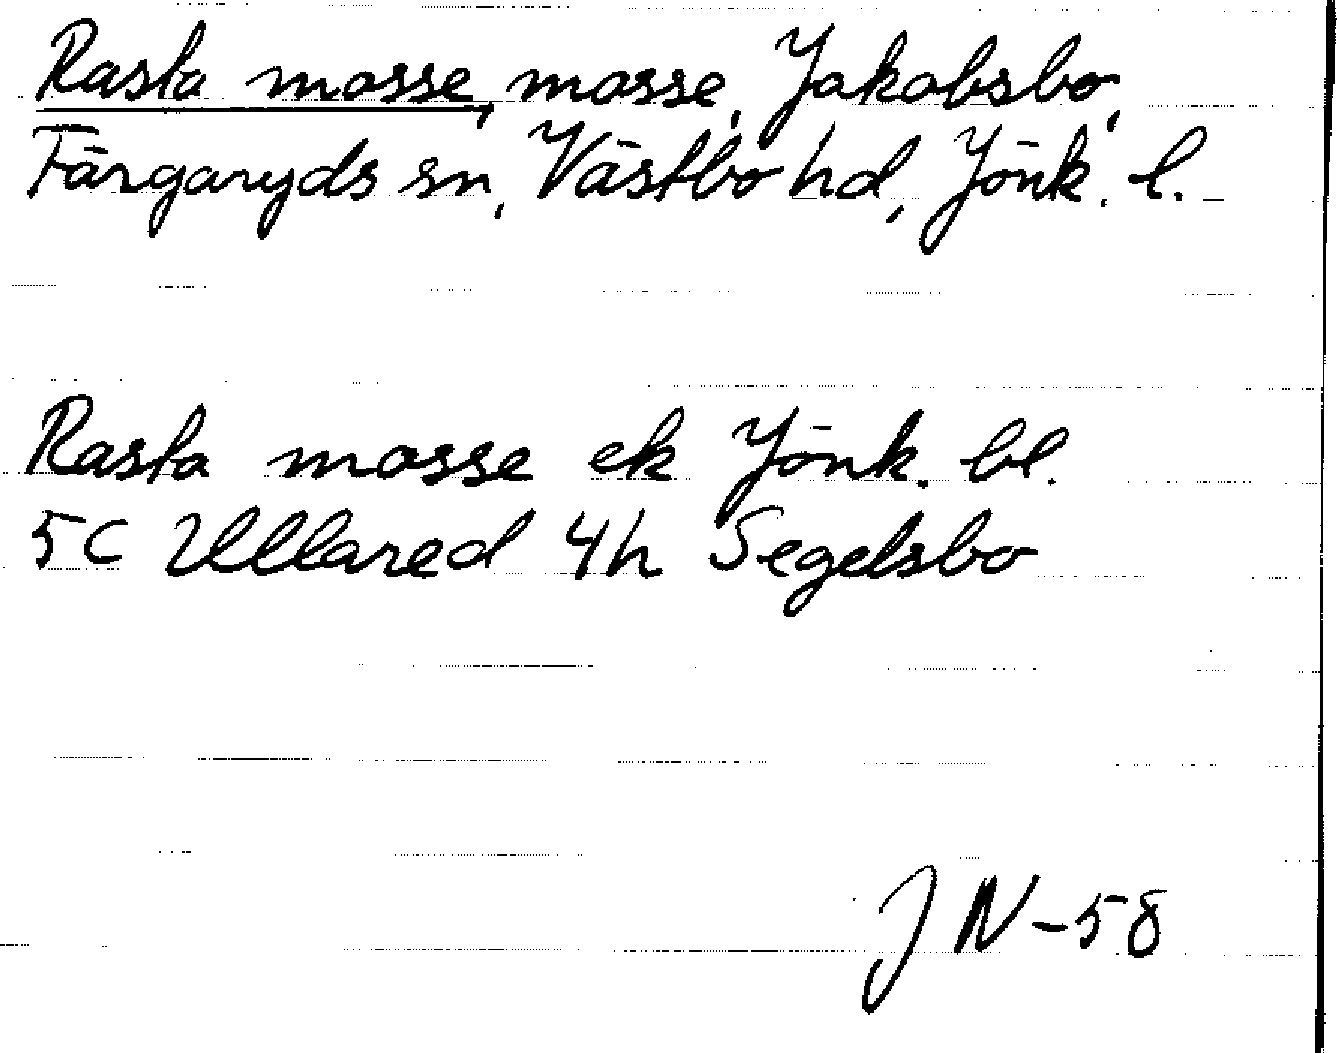 Rasta mosse, mosse, Jakobsbo,
Färgaryds sn, Västbo hd, Jönk. l.
Rasta mosse ek Jönk. bl.
5C Ullared 4h Segelsbo
JN-58